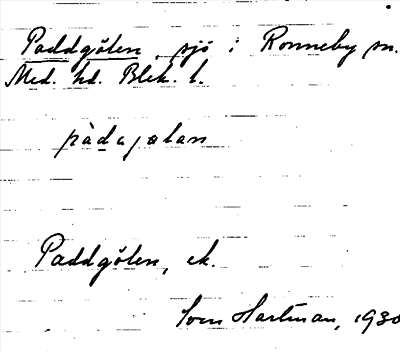 Paddgölen, sjö i Ronneby sn.
Med. hd. Blek. l.
pàdajølan
Paddgölen, ek.
Sven Hartman, 1930